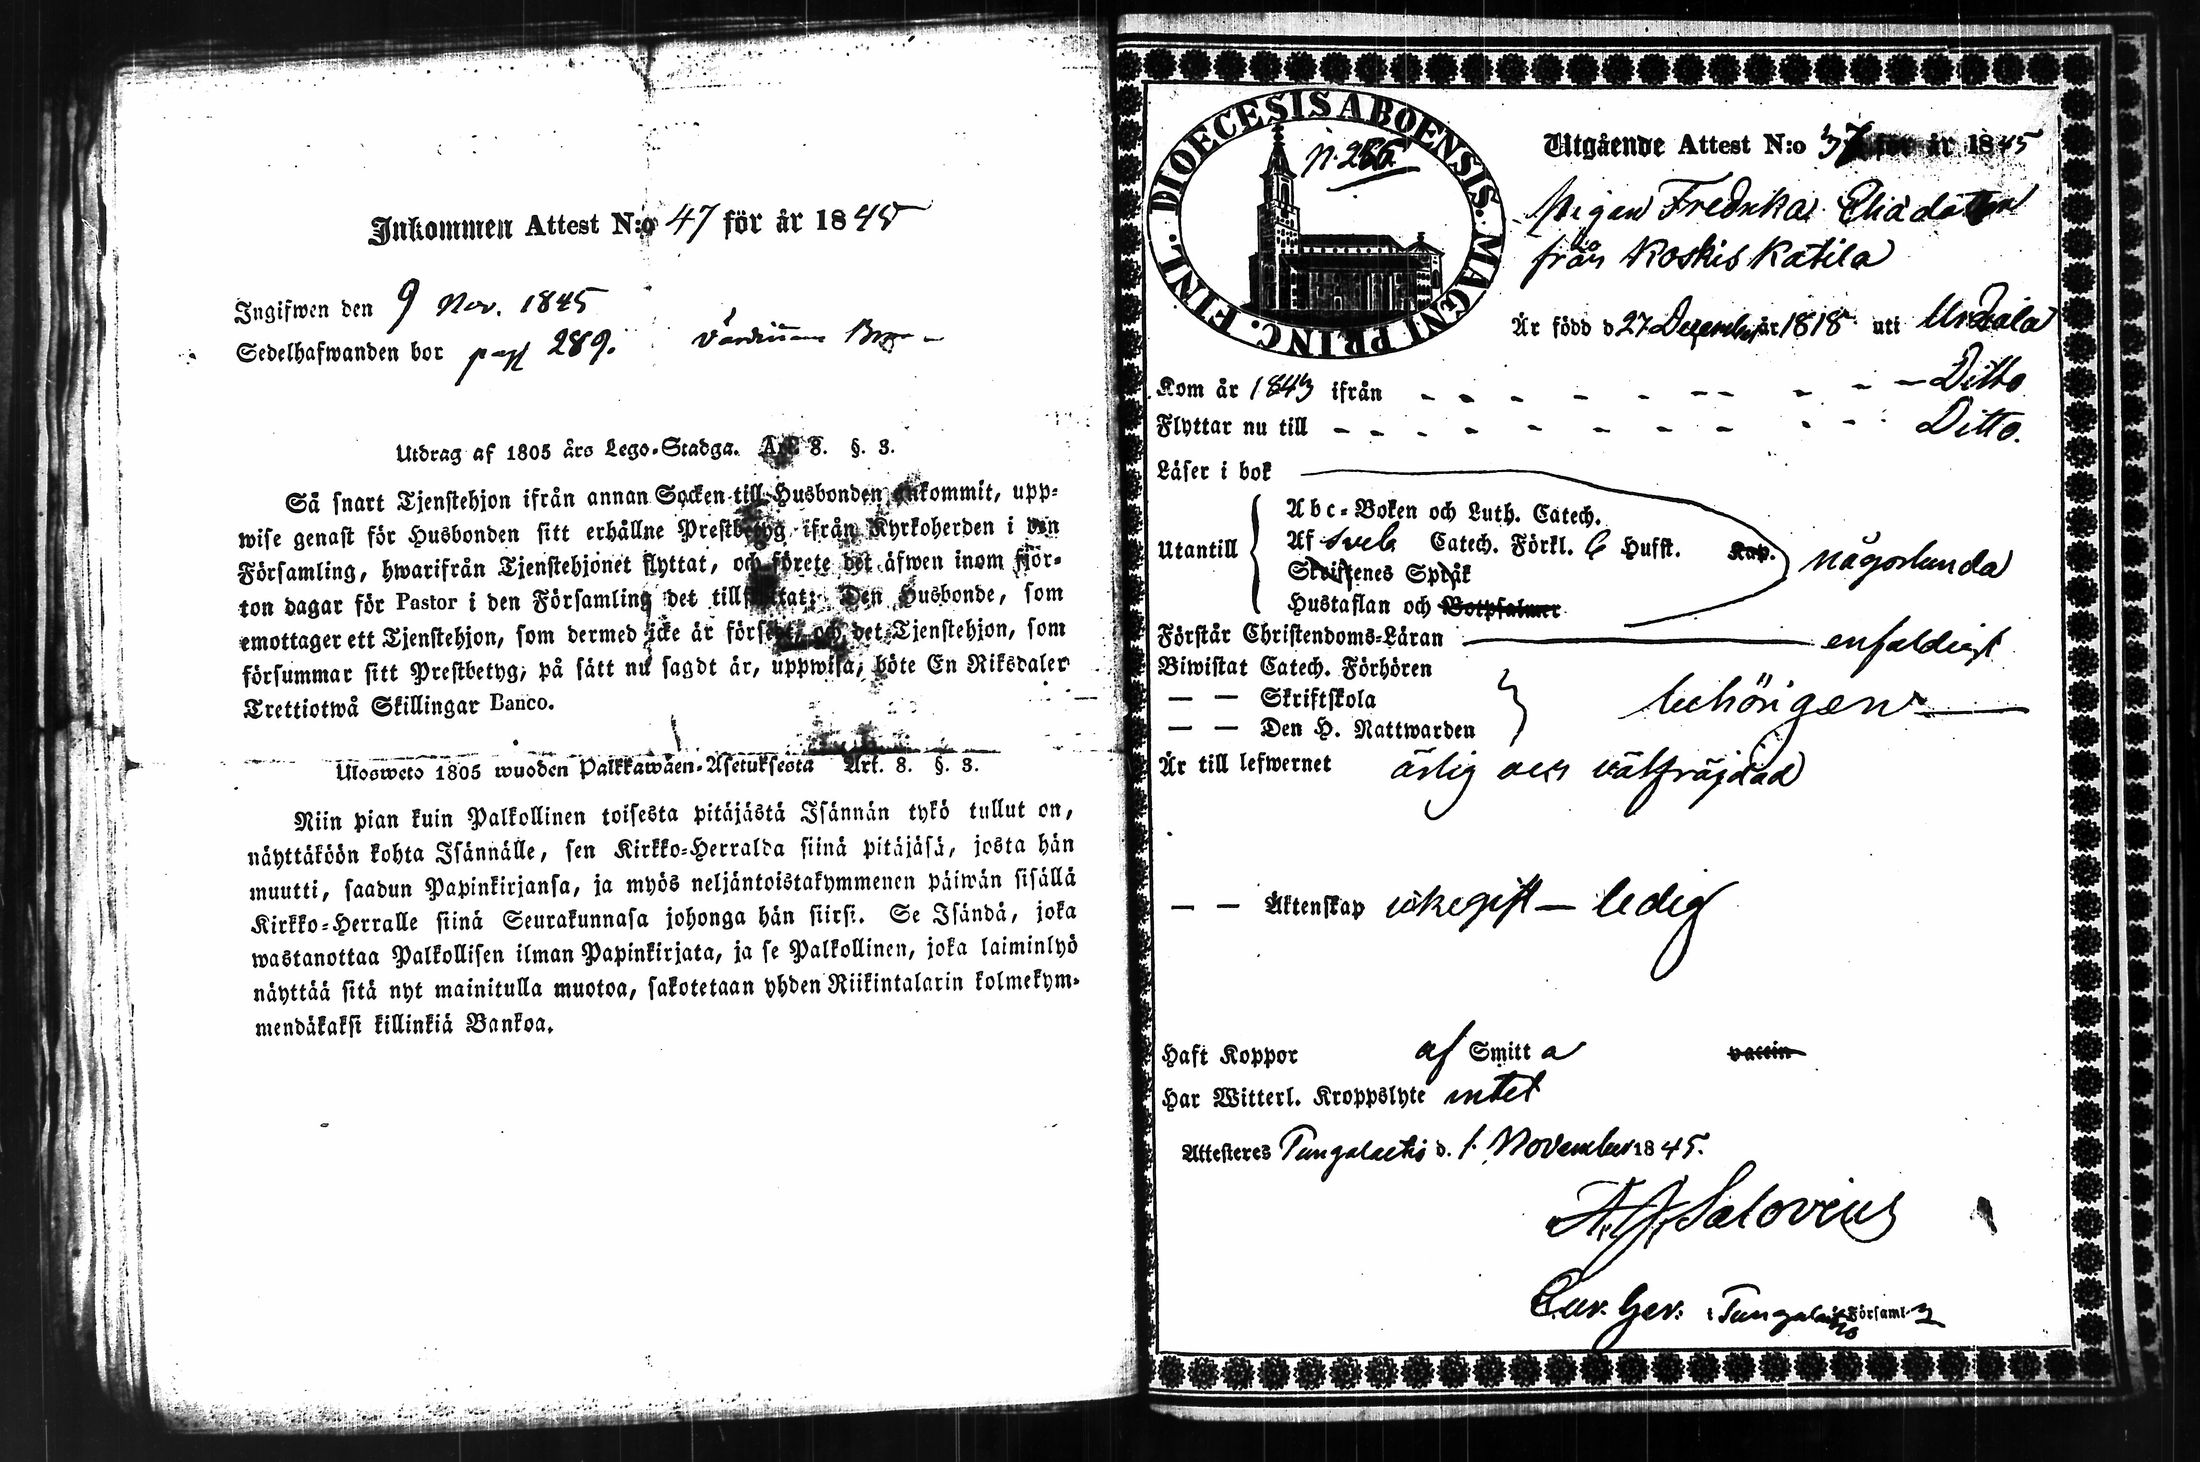 Inkommen Attest N:o 47 för år 1845
Ingifwen den 9 Nov. 1845
Sedelhafwanden bor pag 289.
Utdrag af 1805 års Lego-Stadga. Art. 8. §. 3.
Så snart Tjenstehjon ifrån annan Socken till Husbonden ankommit, upp-
wise genast för Husbonden sitt erhållne Prestbetyg ifrån Kyrkoherden i den
Församling, hwarifrån Tjenstehjonet flyttat, och förete det äfwen inom fjor-
ton dagar för Pastor i den Församling det tillflyttat; Den Husbonde, som
emottager ett Tjenstehjon, som dermed icke är försedt, och det Tjenstehjon, som
försummar sitt Prestbetyg, på sätt nu sagdt är, uppwisa, böte En Riksdaler
Trettiotwå Skillingar Banco.
Ulosweto 1805 wuoden Palkkawäen-Asetuksesta Art. 8. §. 3.
Niin pian kuin Palkollinen toisesta pitäjästä Isännän tykö tullut on,
näyttäköön kohta Isännälle, sen Kirkko-Herralda siinä pitäjäsä, josta hän
muutti, saadun Papinkirjansa, ja myös neljäntoistakymmenen päiwän sisällä
Kirkko-Herralle siinä Seurakunnasa johonga hän siirsi. Se Isändä, joka
wastanottaa Palkollisen ilman Papinkirjata, ja se Palkollinen, joka laiminlyö
näyttää sitä nyt mainitulla muotoa, sakotetaan yhden Riikintalarin kolmekym-
mendäkaksi killinkiä Bankoa.
DIOECESIS ABOENSIS. MAGNI PRINC. FINL.
N. 266
Utgående Attest N:o 37 för år 1845
Pigan Fredrika Eliadotter
från Koskis Katila
Är född d 27 December år 1818 uti Urdiala
Kom år 1843 ifrån - - - - - - - - - Ditto
Flyttar nu till - - - - - - - - - - Ditto.
Läser i bok
Utantill
Abc-Boken och Luth. Catech.
Af Sveb Catech. Förkl. 6 Hufst. Kap.
Skriftenes Språk
Hustaflan och Botpsalmer
någorlunda
Förstår Christendoms-Läran enfaldigt
Biwistat Catech. Förhören
— — Skriftskola
— — Den H. Nattwarden
behörigen
Är till lefwernet ärlig och välfräjdad
— — Äktenskap ickegift — ledig
Haft Koppor af Smitta vaccin
Har Witterl. Kroppslyte intet
Attesteres Pungalaitio d. 1. November 1845.
A. J. Salovius
i Pungalaitio Församl.